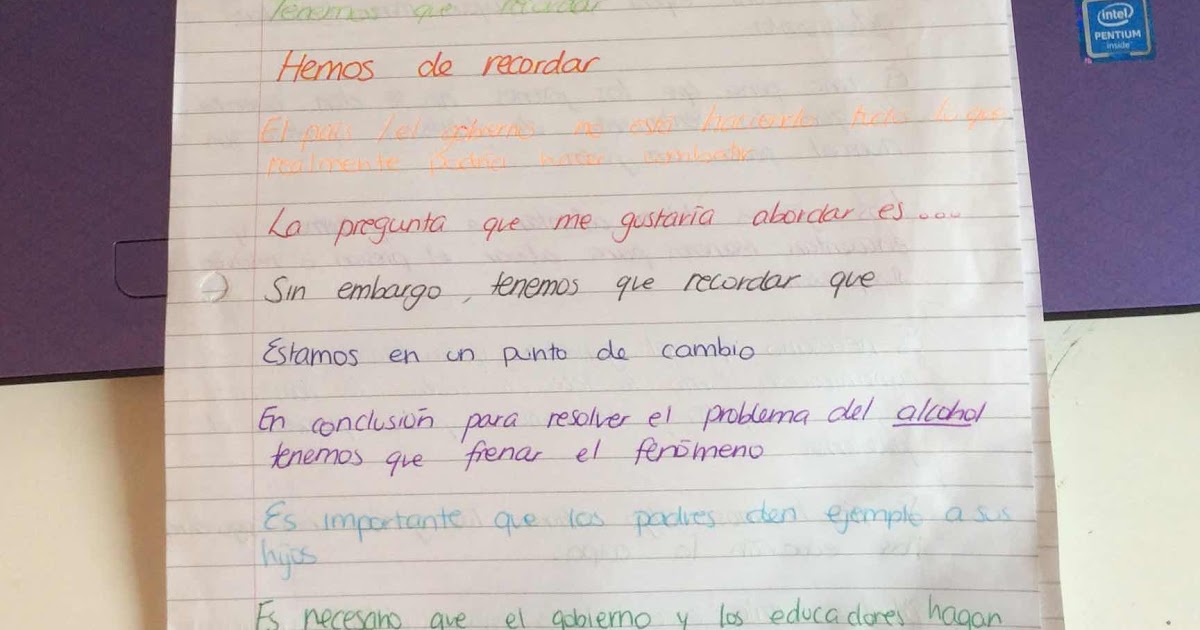 Tenemos que recordar
Hemos de recordar
El país / el gobierno no está haciendo todo lo que
realmente podría hacer
La pregunta que me gustaría abordar es ...
Sin embargo, tenemos que recordar que
Estamos en un punto de cambio
En conclusión para resolver el problema del alcohol
tenemos que frenar el fenómeno
Es importante que los padres den ejemplo a sus
hijos
Es necesario que el gobierno y los educadores hagan
intel
PENTIUM
inside